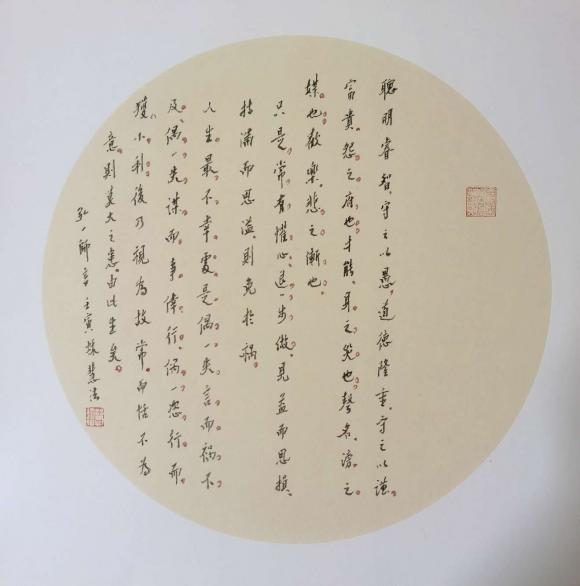 聰明睿智守之以愚道德隆重守之以謙
富貴怨之府也才能身之災也聲名謗之
媒也歡樂悲之漸也
只是常有懼心退一步做見益而思損
持滿而思溢則免於禍
人生最不幸處是偶一失言而禍不
及偶一失謀而事倖行偶一恣行而
獲小利後乃視為故常而恬不為
意則莫大之患由此生矣
弘一師言壬寅